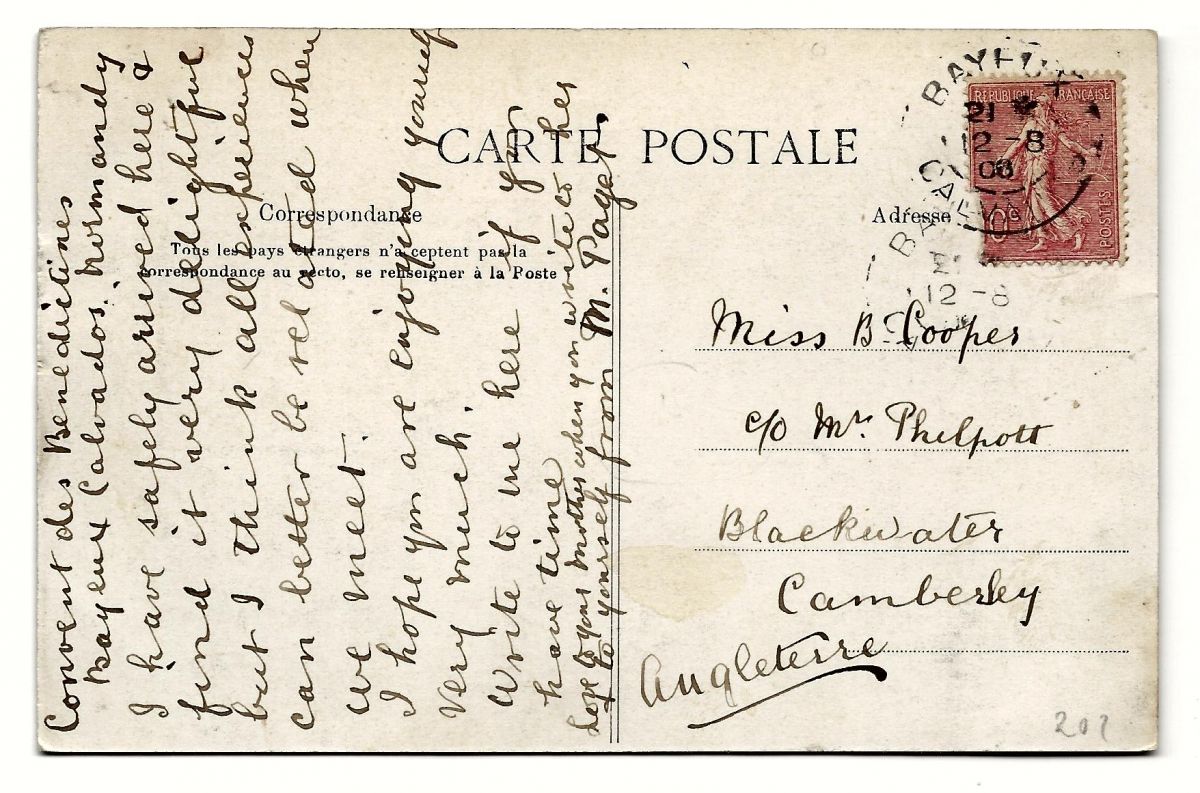 CARTE POSTALE
Correspondance
Tous les pays étrangers n'acceptent pas la
correspondance au recto, se renseigner à la Poste
Adresse
Convent des Benedictines
Bayeux Calvados. Normandy
I have safely arrived here &
find it very delightful
but I think all experiences
can better be related when
we meet.
I hope you are enjoying yourself
very much.
Write to me here if you
have time
Love to your mother when you write to her
to yourself from M. Paget.
Miss B. Cooper
c/o Mr. Philpott
Blackwater
Camberley
Angleterre
RÉPUBLIQUE FRANÇAISE
POSTES
10c
BAYEUX
21
12 - 8
06
BAYEUX
CALVADOS
21
12 - 8
202